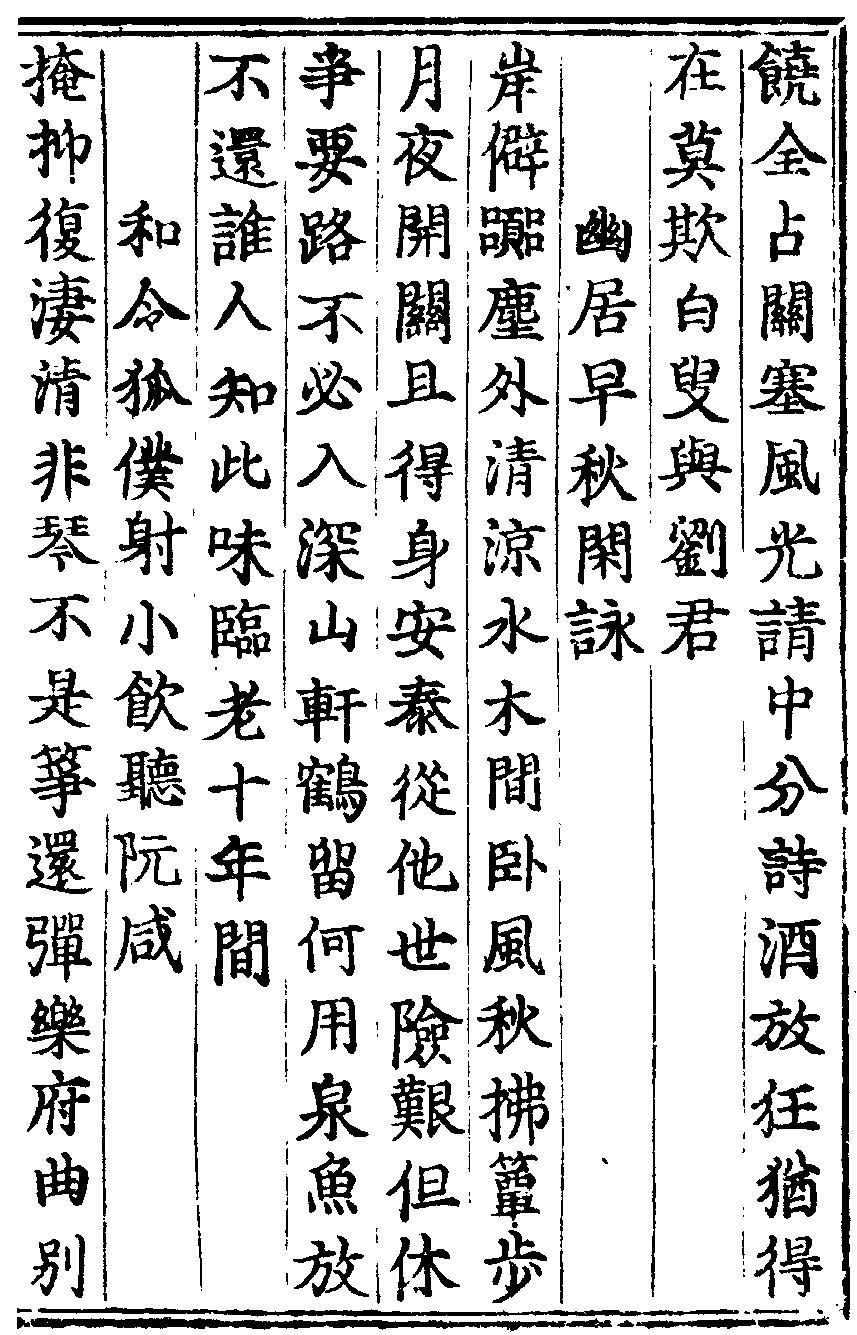 饒全占關塞風光請中分詩酒放狂猶得
在莫欺白叟與劉君
幽居早秋閑詠
岸僻嚻塵外清涼水木間卧風秋拂簟步
月夜開關且得身安泰從他世險艱但休
爭要路不必入深山軒鶴留何用泉魚放
不還誰人知此味臨老十年間
和令狐僕射小飲聽阮咸
掩抑復淒清非琴不是箏還彈樂府曲別